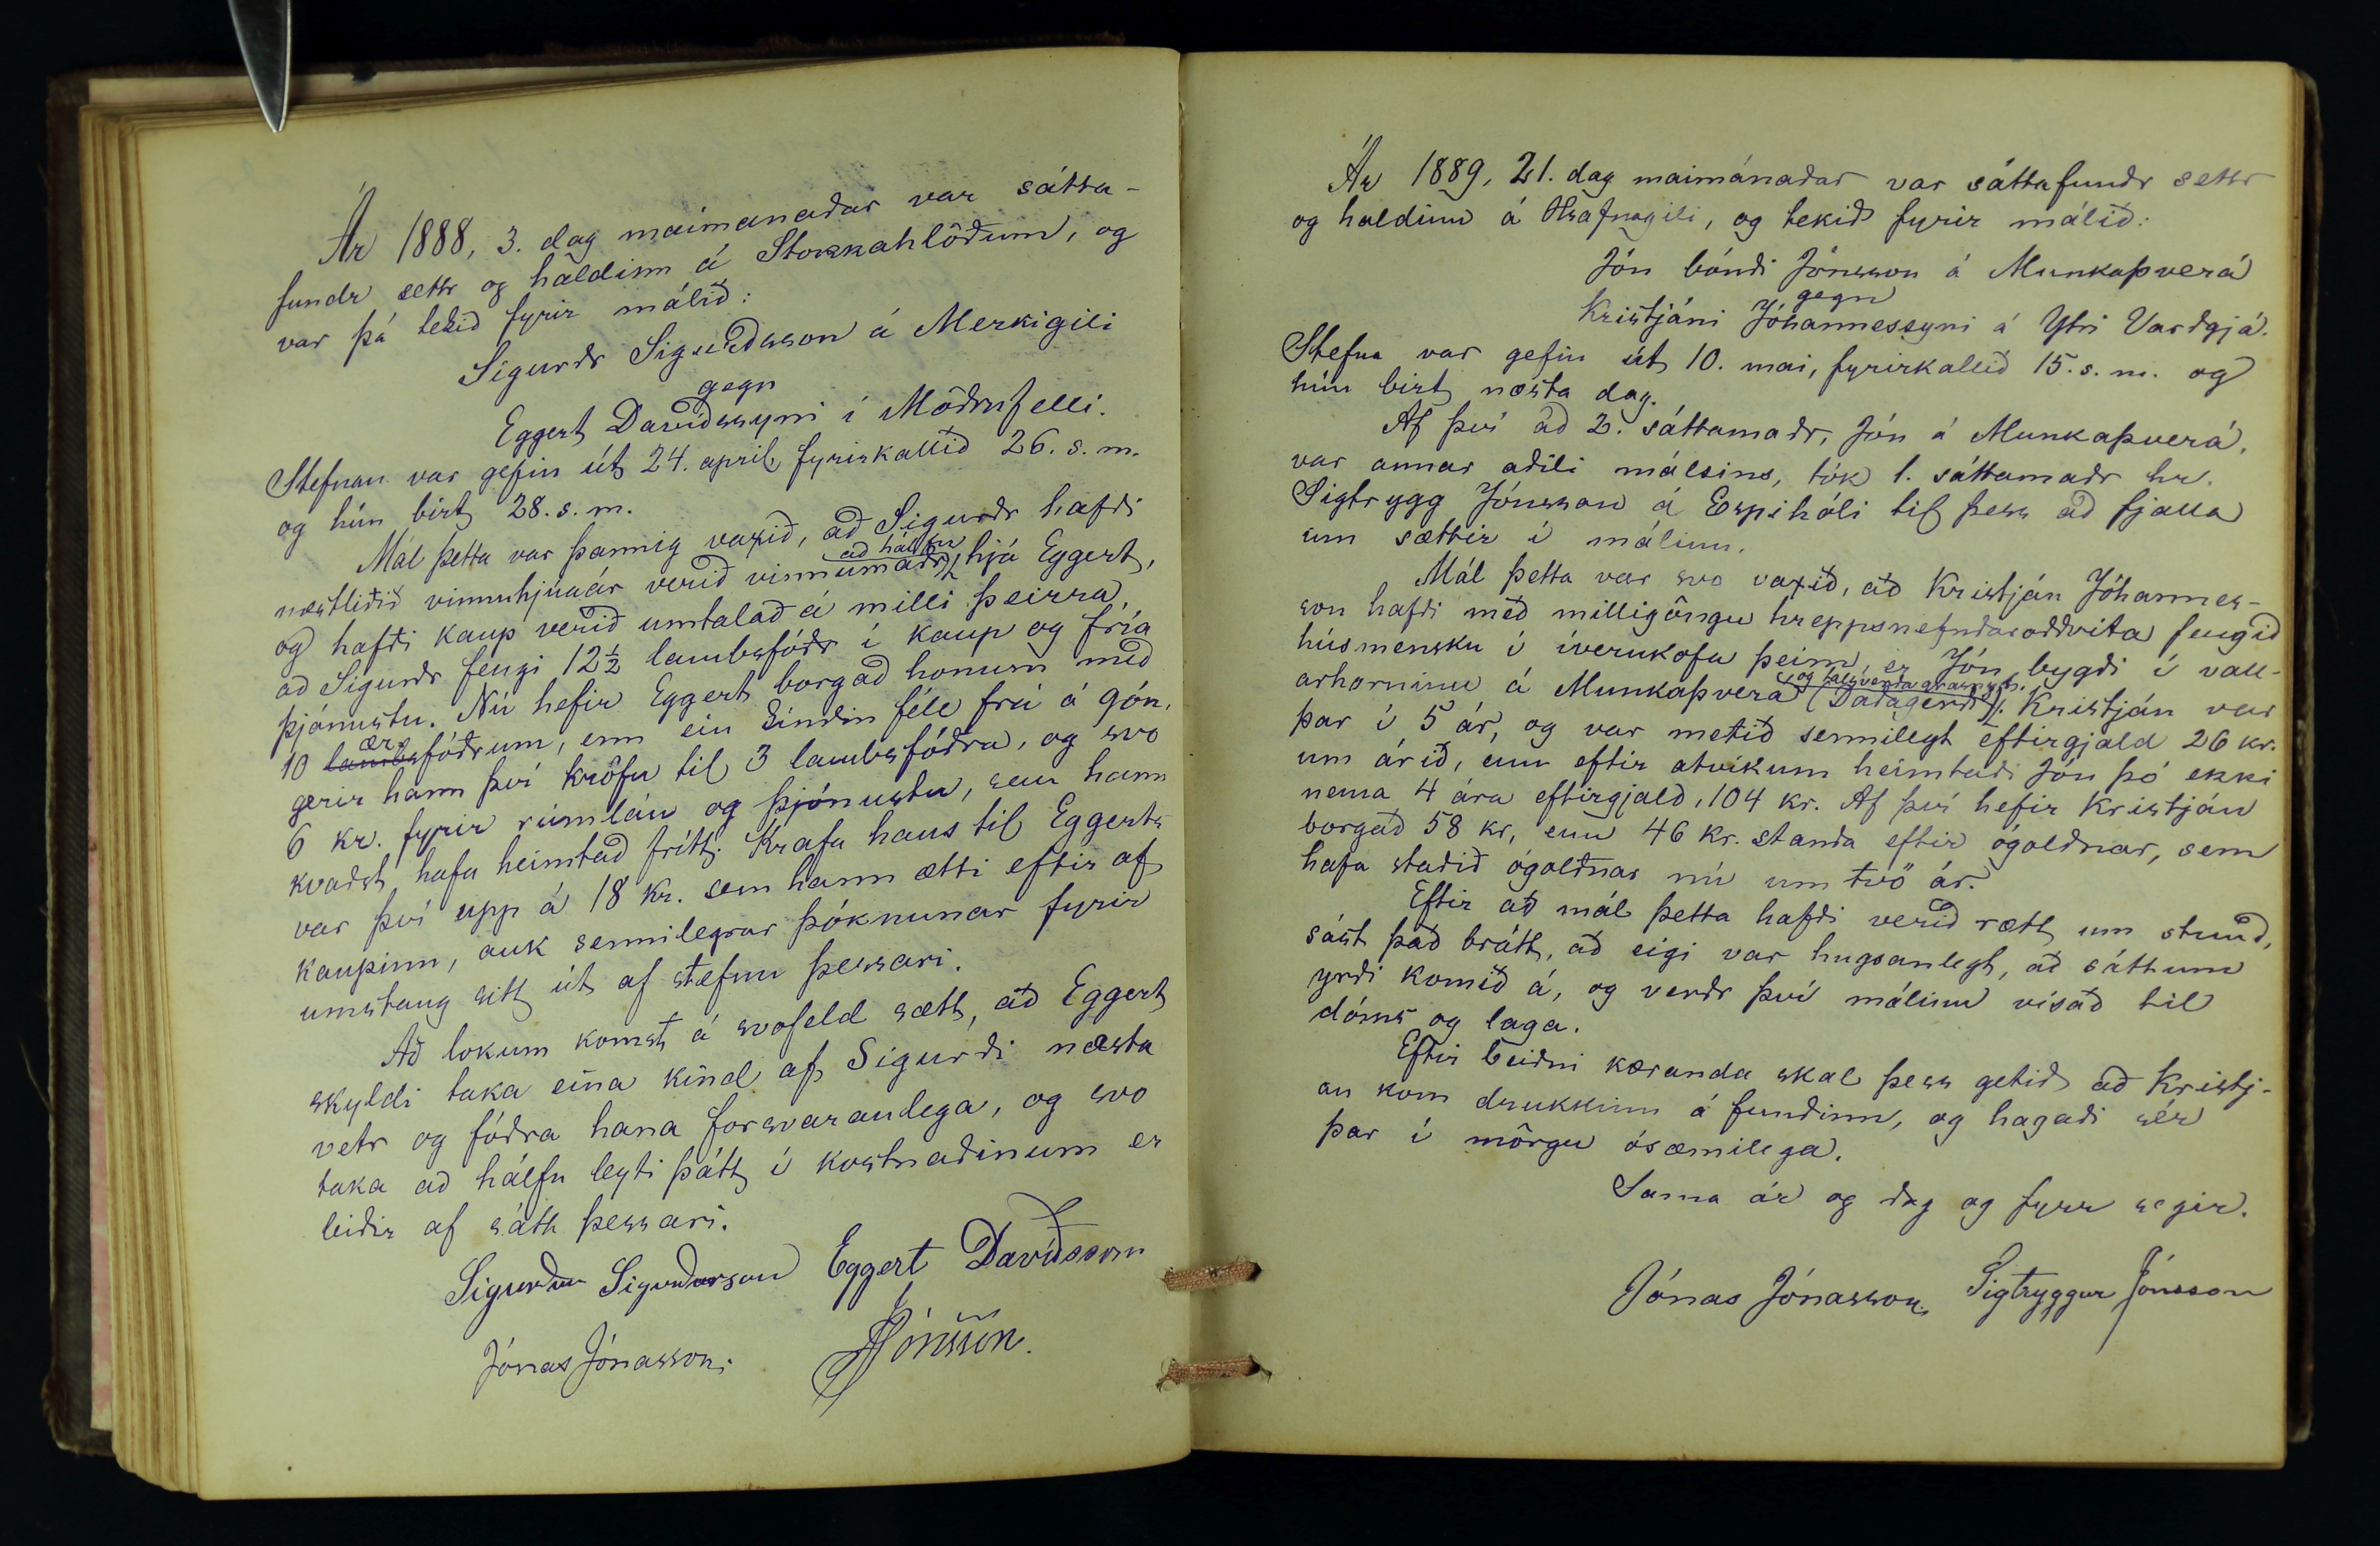 Ár 1888, 3. dag maimánaðar var sátta-
fundr settr og haldinn á Stokkahlöðum, og
var þá tekið fyrir málið:
Sigurðr Sigurðsson á Merkigili
gegn
Eggert Davíðssyni í Möðrufelli.
Stefnan var gefin út 24. april, fyrirkallið 26. s. m.
og hún birt 28. s. m.
Mál þetta var þannig vaxið, að Sigurðr hafði
næstliðið vinnuhjúaár verið vinnumaðr að hálfu hjá Eggert,
og hafði kaup verið umtalað á milli þeirra,
að Sigurðr fengi 12½ lambsfóðr í kaup og fría
þjónustu. Nú hefir Eggert borgað honum með
10 lambs ær fóðrum, enn ein kindin féll frá á góu,
gerir hann því kröfu til 3 lambsfóðra, og svo
6 kr. fyrir rúmlán og þjónustu, sem hann
kvaðst hafa heimtað frítt. Krafa hans til Eggerts
var því upp á 18 kr. sem hann ætti eftir af
kaupinu, auk sennilegrar þóknunar fyrir
umstang sitt út af stefnu þessari.
Að lokum komst á svofeld sætt, að Eggert
skyldi taka eina kind af Sigurði næsta
vetr og fóðra hana forsvaranlega, og svo
taka að hálfu leyti þátt í kostnaðinum er
leiðir af sátt þessari.
Sigurður Sigurðarson Eggert Davíðsson
Jónas Jónasson. JJónsson.
Ár 1889, 21. dag maimánaðar var sáttafundr settr
og haldinn á Hrafnagili, og tekið fyrir málið:
Jón bóndi Jónsson á Munkaþverá
gegn
Kristjáni Jóhannessyni á Ytri Varðgjá.
Stefna var gefin út 10. mai, fyrirkallið 15. s. m. og
hún birt næsta dag.
Af því að 2. sáttamaðr, Jón á Munkaþverá,
var annar aðili málsins, tók 1. sáttamaðr hr.
Sigtrygg Jónsson á Espihóli til þess að fjalla
um sættir í málinu.
Mál þetta var svo vaxið, að Kristján Jóhannes-
son hafði með milligöngu hreppsnefndaroddvita fengið
húsmensku í íverukofa þeim, er Jón bygði í vall-
arhorninu á Munkaþverá (Daðagerði). Kristján var
þar í 5 ár, og var metið sennilegt eftirgjald 26 kr.
um árið, enn eftir atvikum heimtaði Jón þó ekki
nema 4 ára eftirgjald, 104 kr. Af því hefir Kristján
borgað 58 kr, enn 46 kr. standa eftir ógoldnar, sem
hafa staðið ógoldnar nú um tvö ár.
Eftir að mál þetta hafði verið rætt um stund,
sást það brátt, að eigi var hugsanlegt, að sáttum
yrði komið á, og verðr því málinu vísað til
dóms og laga.
Eftir beiðni kæranda skal þess getið að Kristj-
án kom drukkinn á fundinn, og hagaði sér
þar í mörgu ósæmilega.
Sama ár og dag og fyrr segir.
Jónas Jónasson. Sigtryggur Jónsson